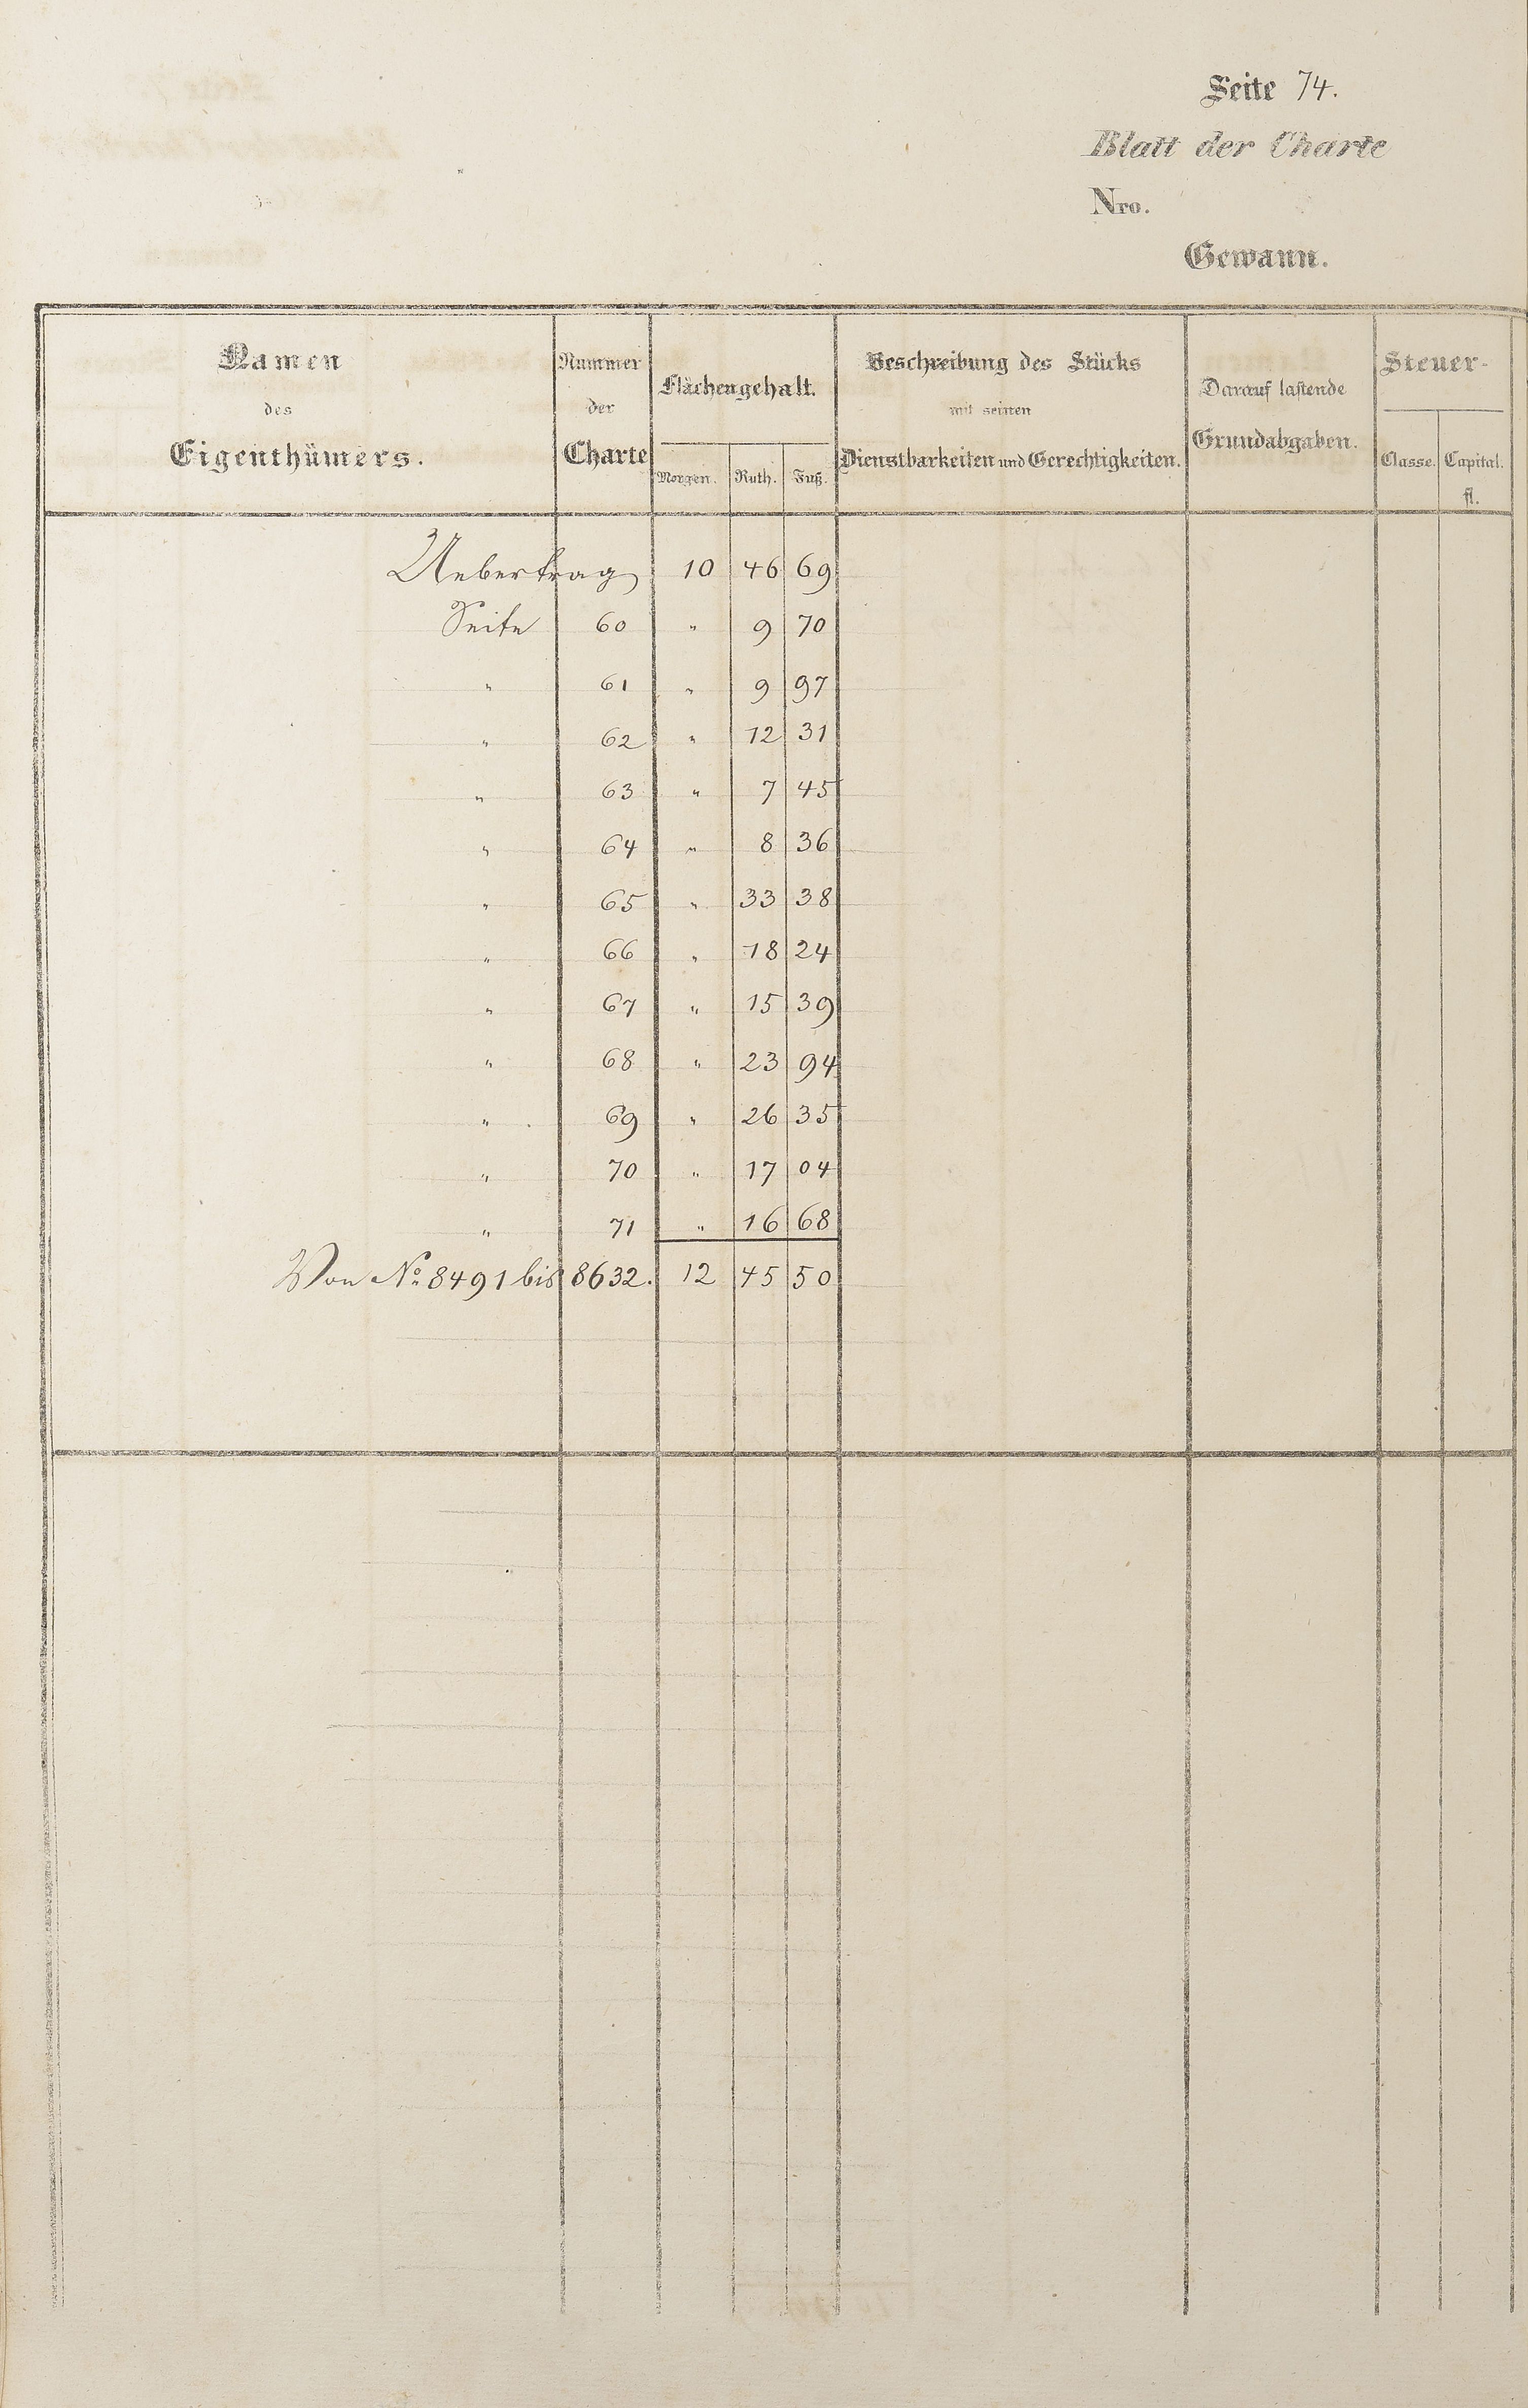 Seite 74.
Blatt der Charte
Nro.
Gewann.
Namen des Eigenthümers. | Nummer der Charte | Flächengehalt. Morgen. Ruth. Fuß. | Beschreibung des Stücks mit seinen Dienstbarkeiten und Gerechtigkeiten. | Darauf lastende Grundabgaben. | Steuer- Classe. Capital. fl.
Uebertrag 10 46 69
Seite 60 " 9 70
" 61 " 9 97
" 62 " 12 31
" 63 " 7 45
" 64 " 8 36
" 65 " 33 38
" 66 " 18 24
" 67 " 15 39
" 68 " 23 94
" 69 " 26 35
" 70 " 17 04
" 71 " 16 68
Von No. 8491 bis 8632. 12 45 50